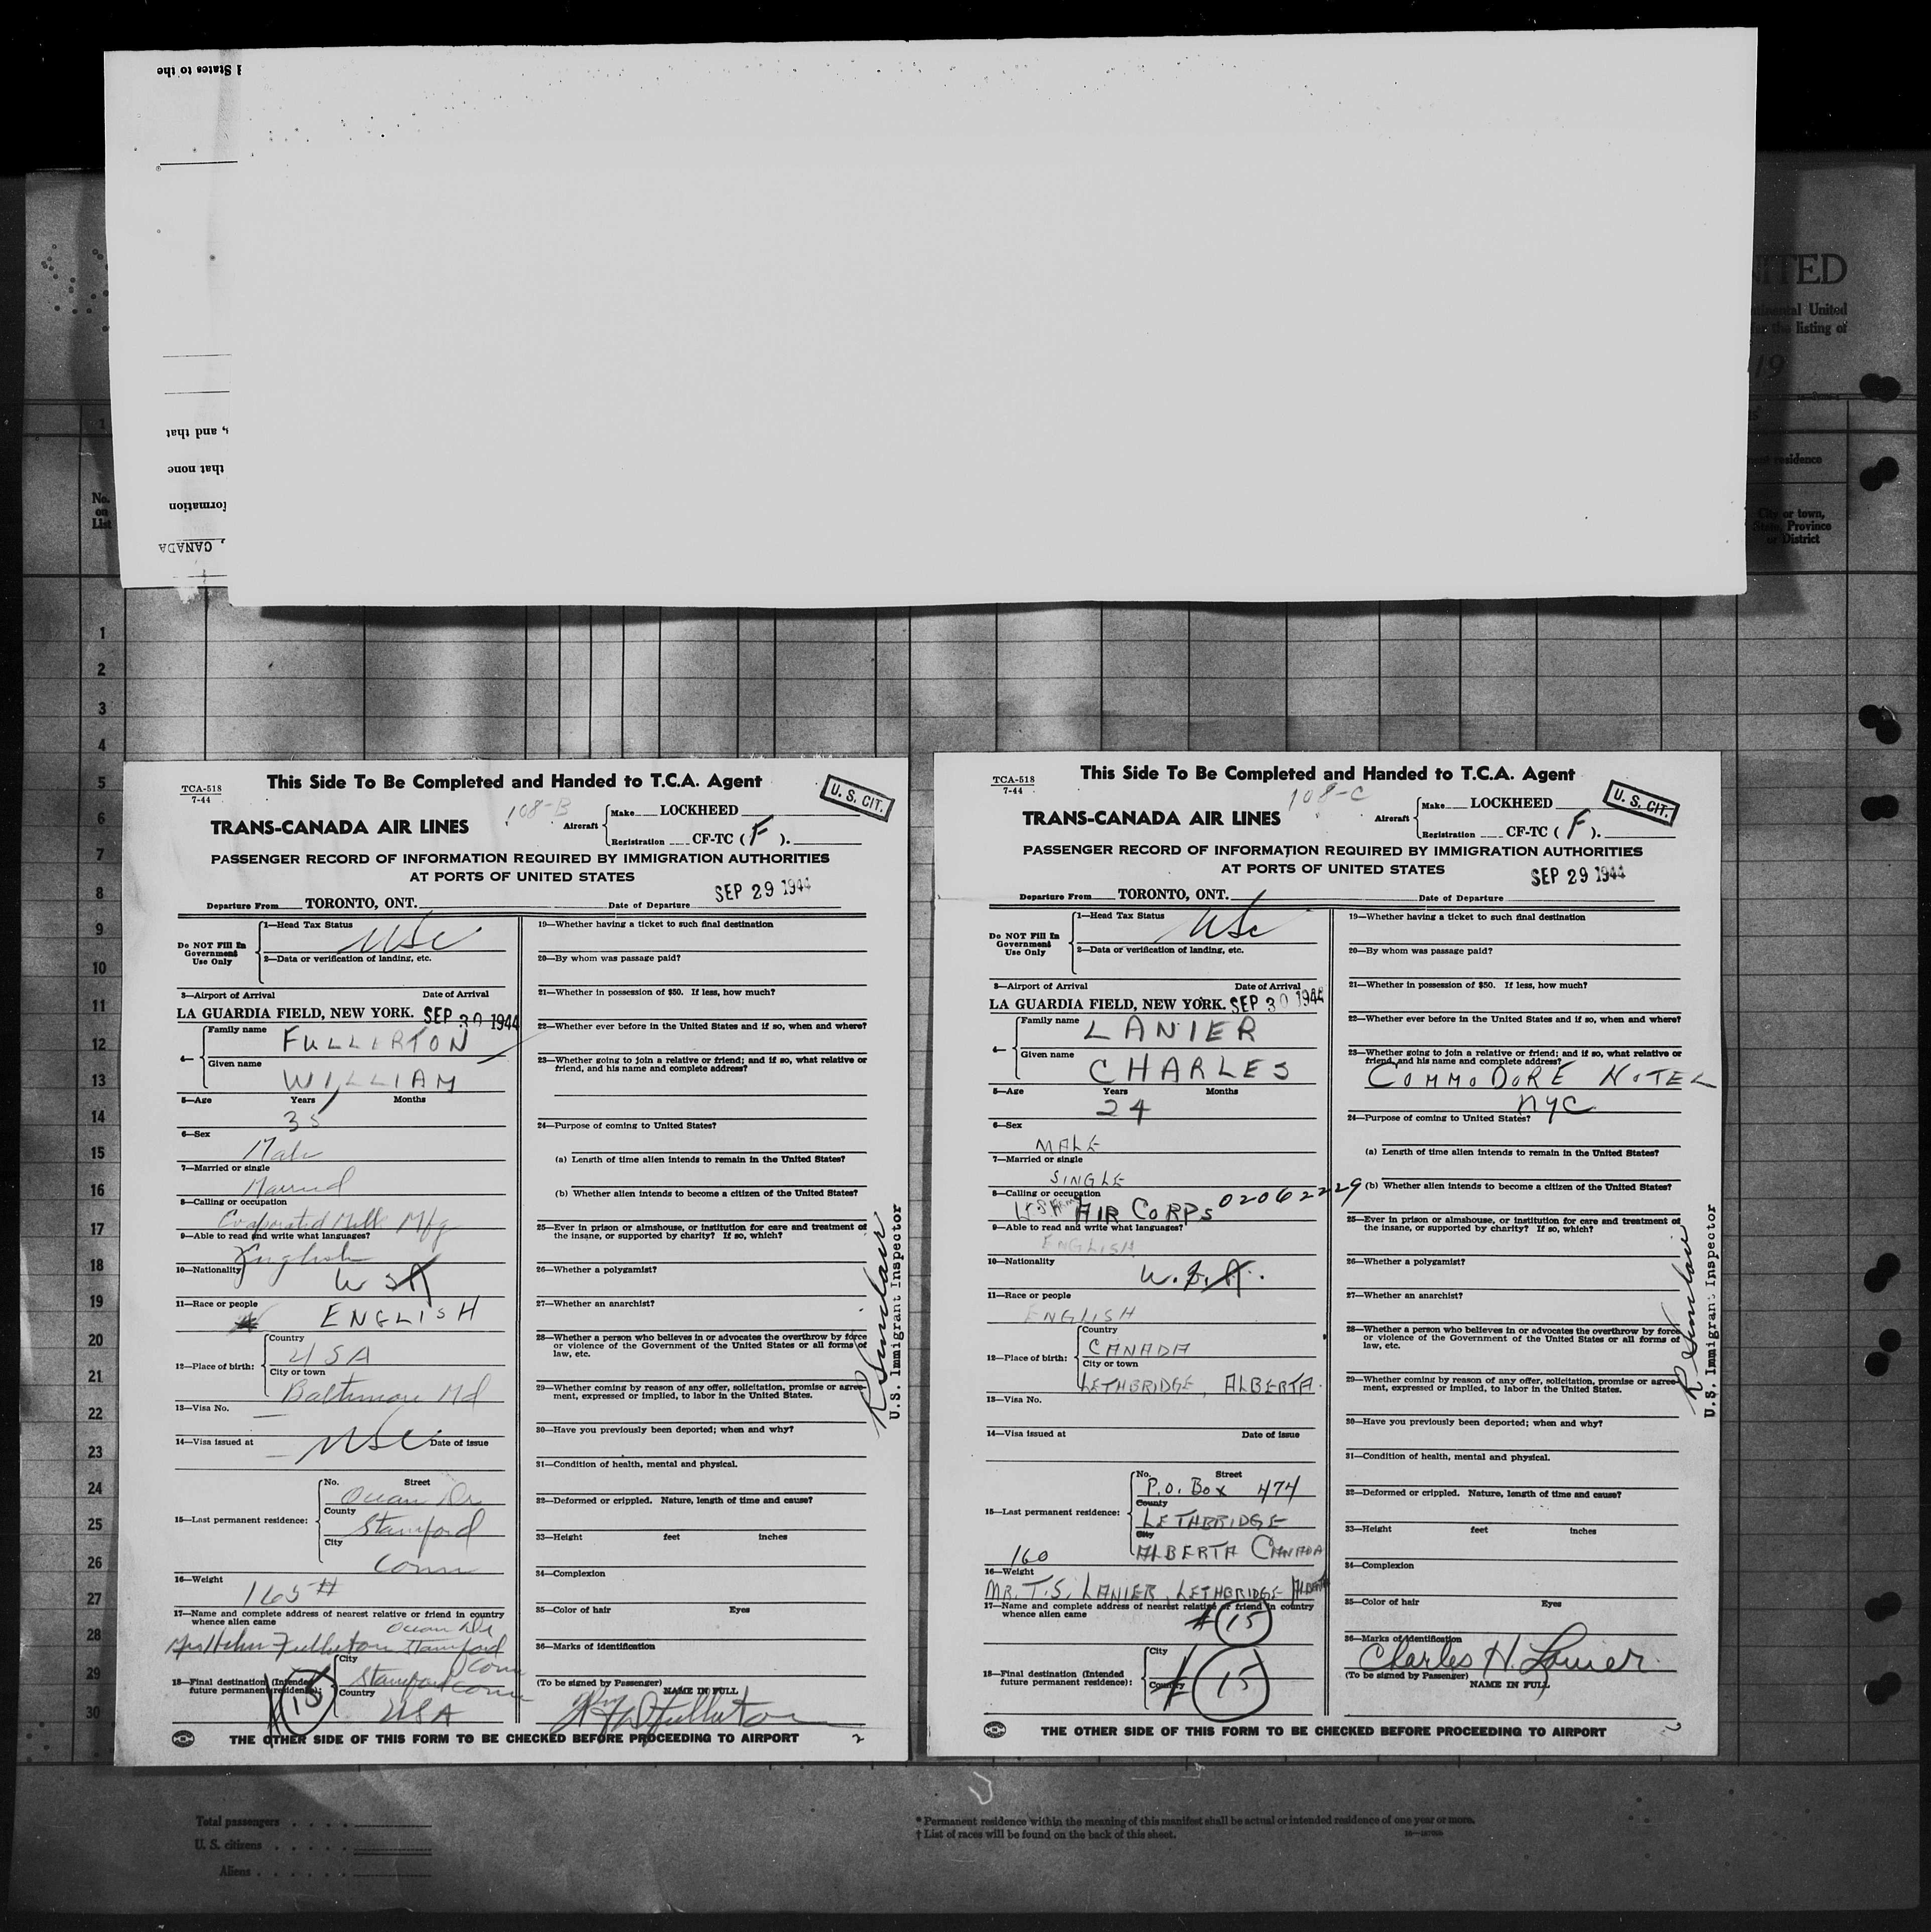 1 States to the
, and that
that none
formation
, CANADA
NITED
tinental United
for the listing of
19
No.
on
List
residence
City or town,
State, Province
or District
1
2
3
4
5
6
7
8
9
10
11
12
13
14
15
16
17
18
19
20
21
22
23
24
25
26
27
28
29
30
TCA-518
7-44
This Side To Be Completed and Handed to T.C.A. Agent
U. S. CIT.
108-B
TRANS-CANADA AIR LINES
Aircraft
Make LOCKHEED
Registration CF-TC ( F ).
PASSENGER RECORD OF INFORMATION REQUIRED BY IMMIGRATION AUTHORITIES
AT PORTS OF UNITED STATES
SEP 29 1944
Departure From TORONTO, ONT. Date of Departure
Do NOT Fill In
Government
Use Only
1—Head Tax Status
USC
2—Data or verification of landing, etc.
3—Airport of Arrival Date of Arrival
LA GUARDIA FIELD, NEW YORK. SEP 30 1944
4— Family name
FULLERTON
Given name
WILLIAM
5—Age Years Months
35
6—Sex
Male
7—Married or single
Married
8—Calling or occupation
Evaporated Milk Mfg
9—Able to read and write what languages?
English
10—Nationality
USA
11—Race or people
ENGLISH
12—Place of birth:
Country
USA
City or town
Baltimore Md
13—Visa No.
14—Visa issued at Date of issue
USC
15—Last permanent residence:
No. Street
Ocean Dr
County
Stamford
City
Conn
16—Weight
165 #
17—Name and complete address of nearest relative or friend in country
whence alien came
Ocean Dr
Mrs Helen Fullerton Stamford
Conn
18—Final destination (Intended
future permanent residence):
15
City
Stamford Conn
Country
USA
19—Whether having a ticket to such final destination
20—By whom was passage paid?
21—Whether in possession of $50. If less, how much?
22—Whether ever before in the United States and if so, when and where?
23—Whether going to join a relative or friend; and if so, what relative or
friend, and his name and complete address?
24—Purpose of coming to United States?
(a) Length of time alien intends to remain in the United States?
(b) Whether alien intends to become a citizen of the United States?
25—Ever in prison or almshouse, or institution for care and treatment of
the insane, or supported by charity? If so, which?
26—Whether a polygamist?
27—Whether an anarchist?
28—Whether a person who believes in or advocates the overthrow by force
or violence of the Government of the United States or all forms of
law, etc.
29—Whether coming by reason of any offer, solicitation, promise or agree-
ment, expressed or implied, to labor in the United States.
30—Have you previously been deported; when and why?
31—Condition of health, mental and physical.
32—Deformed or crippled. Nature, length of time and cause?
33—Height feet inches
34—Complexion
35—Color of hair Eyes
36—Marks of identification
(To be signed by Passenger)
NAME IN FULL
Fullerton
U.S. Immigrant Inspector
THE OTHER SIDE OF THIS FORM TO BE CHECKED BEFORE PROCEEDING TO AIRPORT
2
TCA-518
7-44
This Side To Be Completed and Handed to T.C.A. Agent
U. S. CIT.
108-C
TRANS-CANADA AIR LINES
Aircraft
Make LOCKHEED
Registration CF-TC ( F ).
PASSENGER RECORD OF INFORMATION REQUIRED BY IMMIGRATION AUTHORITIES
AT PORTS OF UNITED STATES
SEP 29 1944
Departure From TORONTO, ONT. Date of Departure
Do NOT Fill In
Government
Use Only
1—Head Tax Status
USC
2—Data or verification of landing, etc.
3—Airport of Arrival Date of Arrival
LA GUARDIA FIELD, NEW YORK. SEP 30 1944
4— Family name
LANIER
Given name
CHARLES
5—Age Years Months
24
6—Sex
MALE
7—Married or single
SINGLE
8—Calling or occupation
US Army AIR CORPS 02062229
9—Able to read and write what languages?
ENGLISH
10—Nationality
U.S.A.
11—Race or people
ENGLISH
12—Place of birth:
Country
CANADA
City or town
LETHBRIDGE, ALBERTA.
13—Visa No.
14—Visa issued at Date of issue
15—Last permanent residence:
No. Street
P.O. Box 474
County
LETHBRIDGE
City
ALBERTA CANADA
160
16—Weight
MR. T.S. LANIER, LETHBRIDGE ALBERTA
17—Name and complete address of nearest relative or friend in country
whence alien came
15
18—Final destination (Intended
future permanent residence):
City
Country
15
19—Whether having a ticket to such final destination
20—By whom was passage paid?
21—Whether in possession of $50. If less, how much?
22—Whether ever before in the United States and if so, when and where?
23—Whether going to join a relative or friend; and if so, what relative or
friend, and his name and complete address?
COMMODORE HOTEL
NYC
24—Purpose of coming to United States?
(a) Length of time alien intends to remain in the United States?
(b) Whether alien intends to become a citizen of the United States?
25—Ever in prison or almshouse, or institution for care and treatment of
the insane, or supported by charity? If so, which?
26—Whether a polygamist?
27—Whether an anarchist?
28—Whether a person who believes in or advocates the overthrow by force
or violence of the Government of the United States or all forms of
law, etc.
29—Whether coming by reason of any offer, solicitation, promise or agree-
ment, expressed or implied, to labor in the United States.
30—Have you previously been deported; when and why?
31—Condition of health, mental and physical.
32—Deformed or crippled. Nature, length of time and cause?
33—Height feet inches
34—Complexion
35—Color of hair Eyes
36—Marks of identification
Charles H. Lanier
(To be signed by Passenger)
NAME IN FULL
U.S. Immigrant Inspector
THE OTHER SIDE OF THIS FORM TO BE CHECKED BEFORE PROCEEDING TO AIRPORT
2
Total passengers
U. S. citizens
Aliens
* Permanent residence within the meaning of this manifest shall be actual or intended residence of one year or more.
† List of races will be found on the back of this sheet.